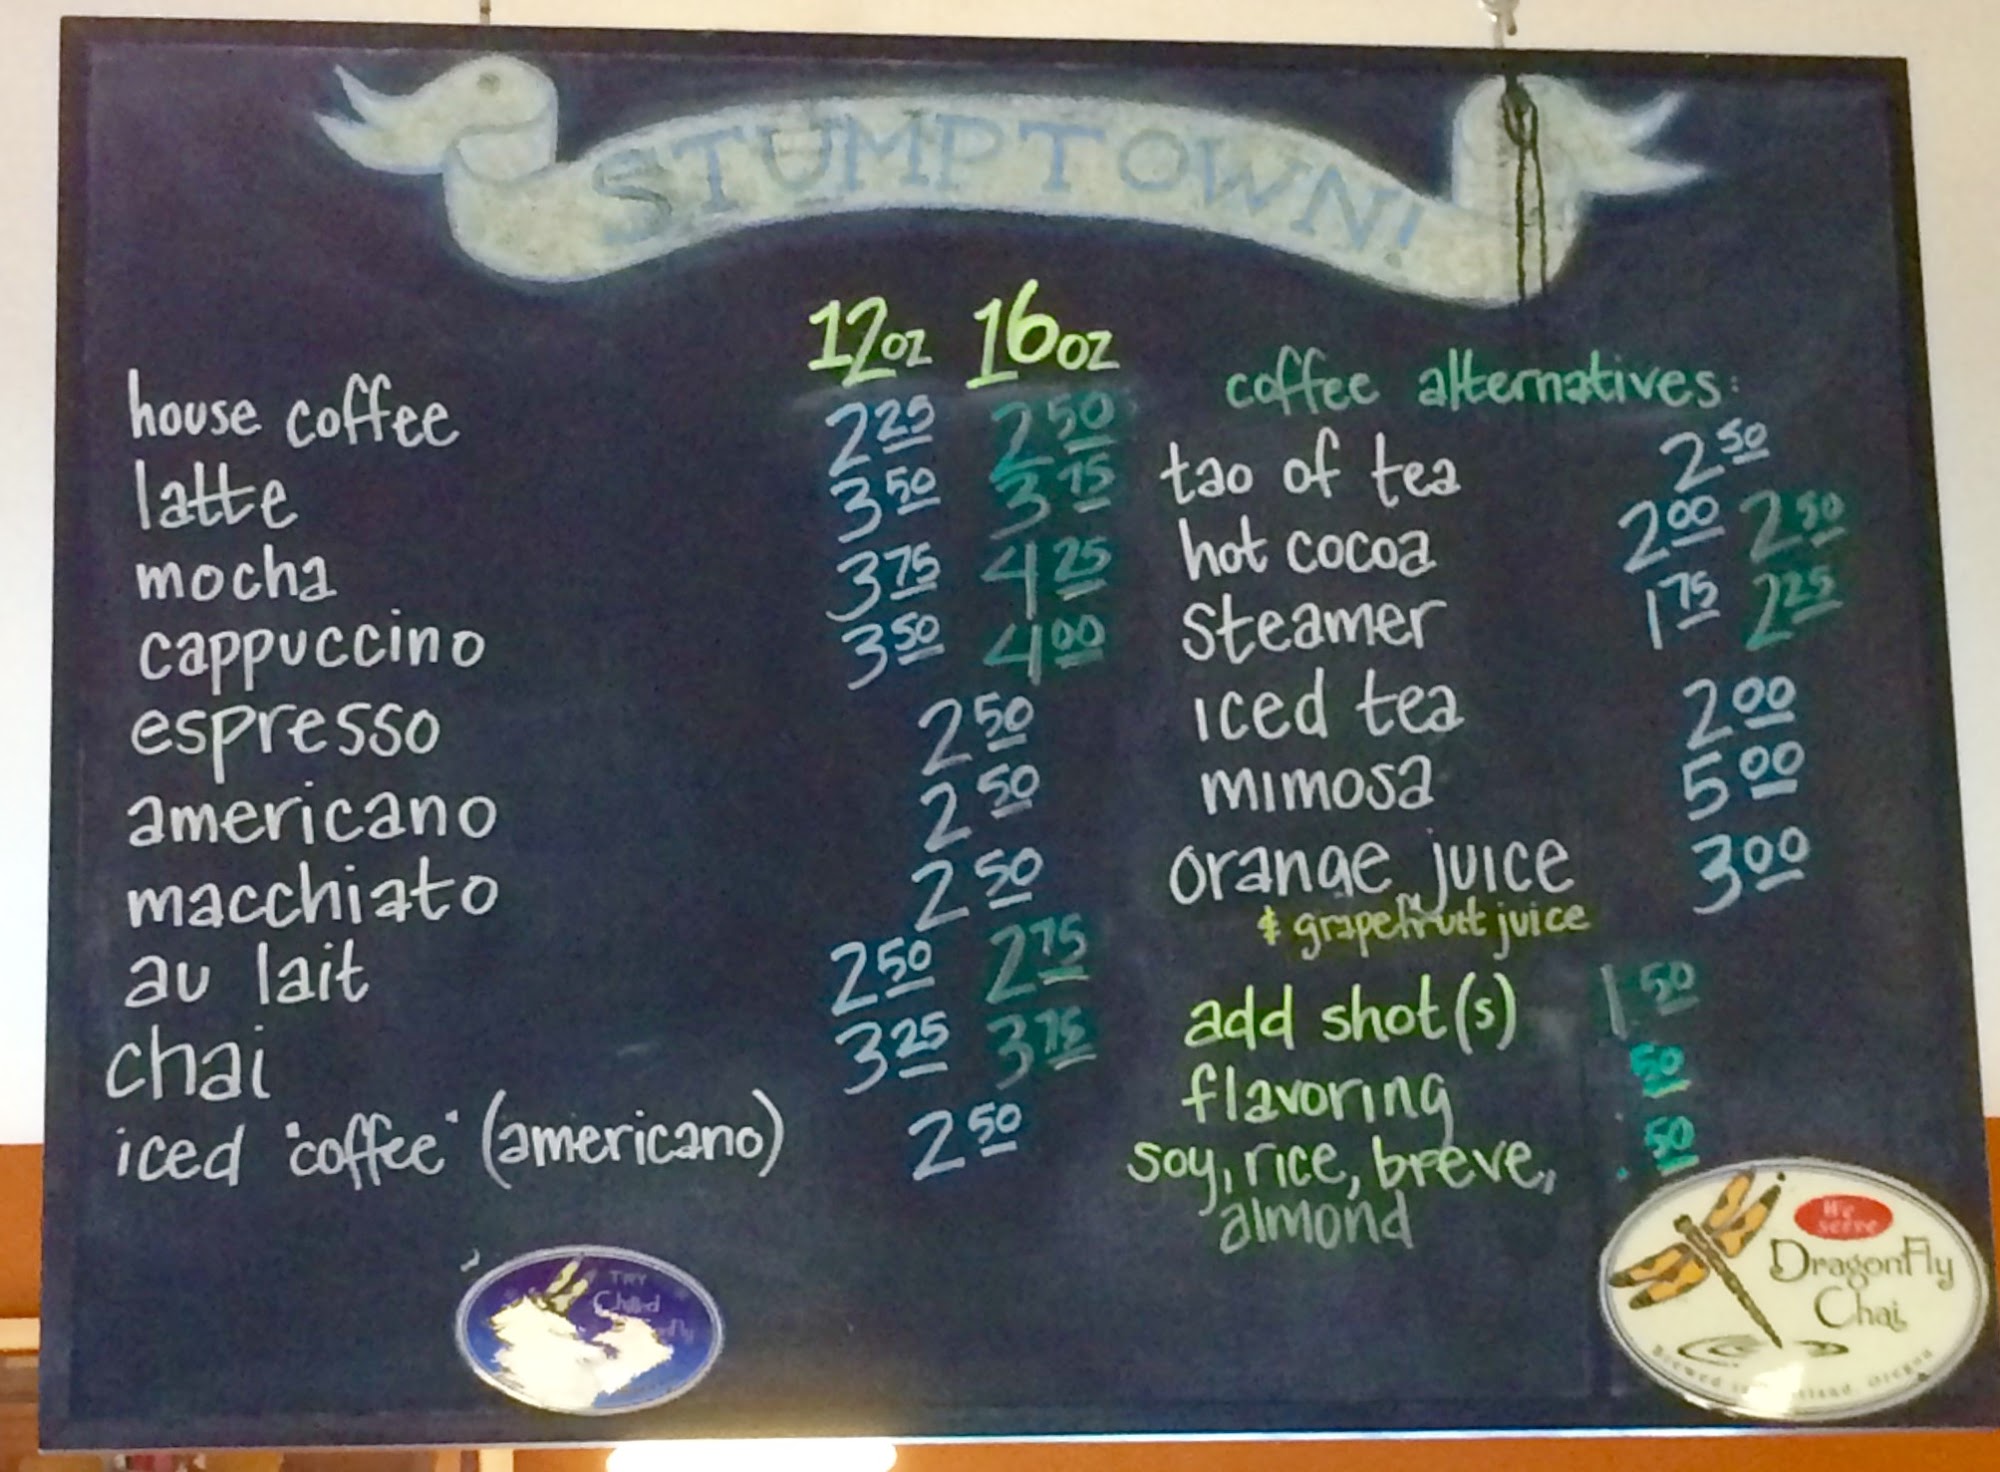 STUMPTOWN!
12oz 16oz
house coffee 2 25 2 50
latte 3 50 3 75
mocha 3 75 4 25
cappuccino 3 50 4 00
espresso 2 50
americano 2 50
macchiato 2 50
au lait 2 50 2 75
chai 3 25 3 75
iced "coffee" (americano) 2 50
coffee alternatives:
tao of tea 2 50
hot cocoa 2 00 2 50
steamer 1 75 2 25
iced tea 2 00
mimosa 5 00
orange juice 3 00
& grapefruit juice
add shot(s) 1 50
flavoring .50
soy, rice, breve, .50
almond
TRY
Chilled
We
serve
DragonFly
Chai
Brewed in Oregon